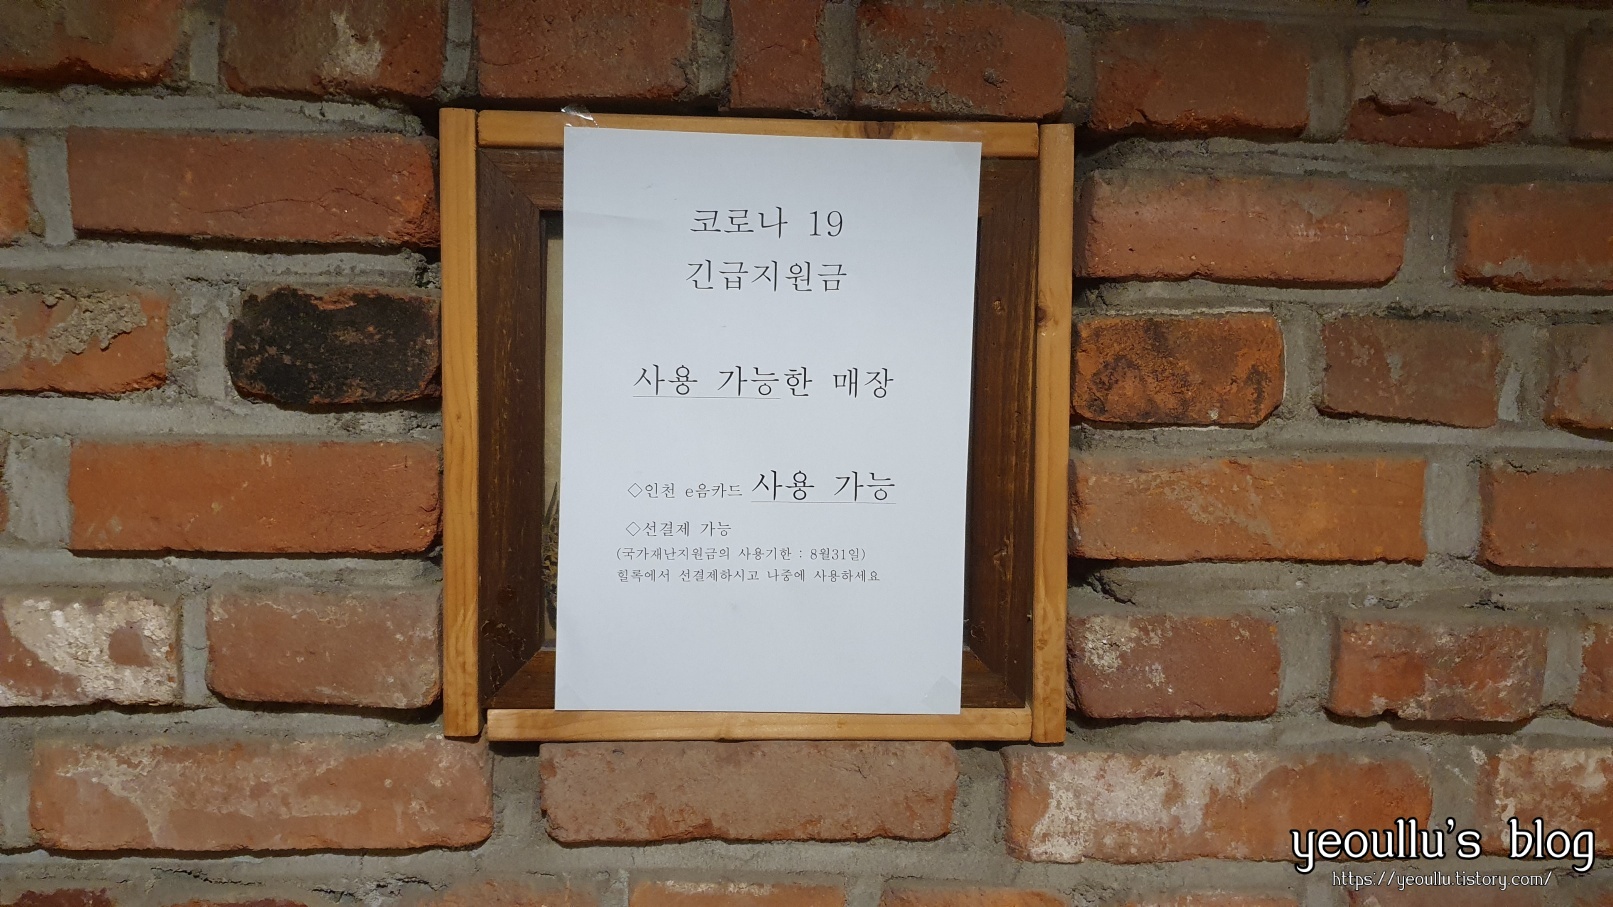 코로나 19
긴급지원금
사용 가능한 매장
◇인천 e음카드 사용 가능
◇선결제 가능
(국가재난지원금의 사용기한 : 8월31일)
힐록에서 선결제하시고 나중에 사용하세요
yeoullu's blog
https://yeoullu.tistory.com/